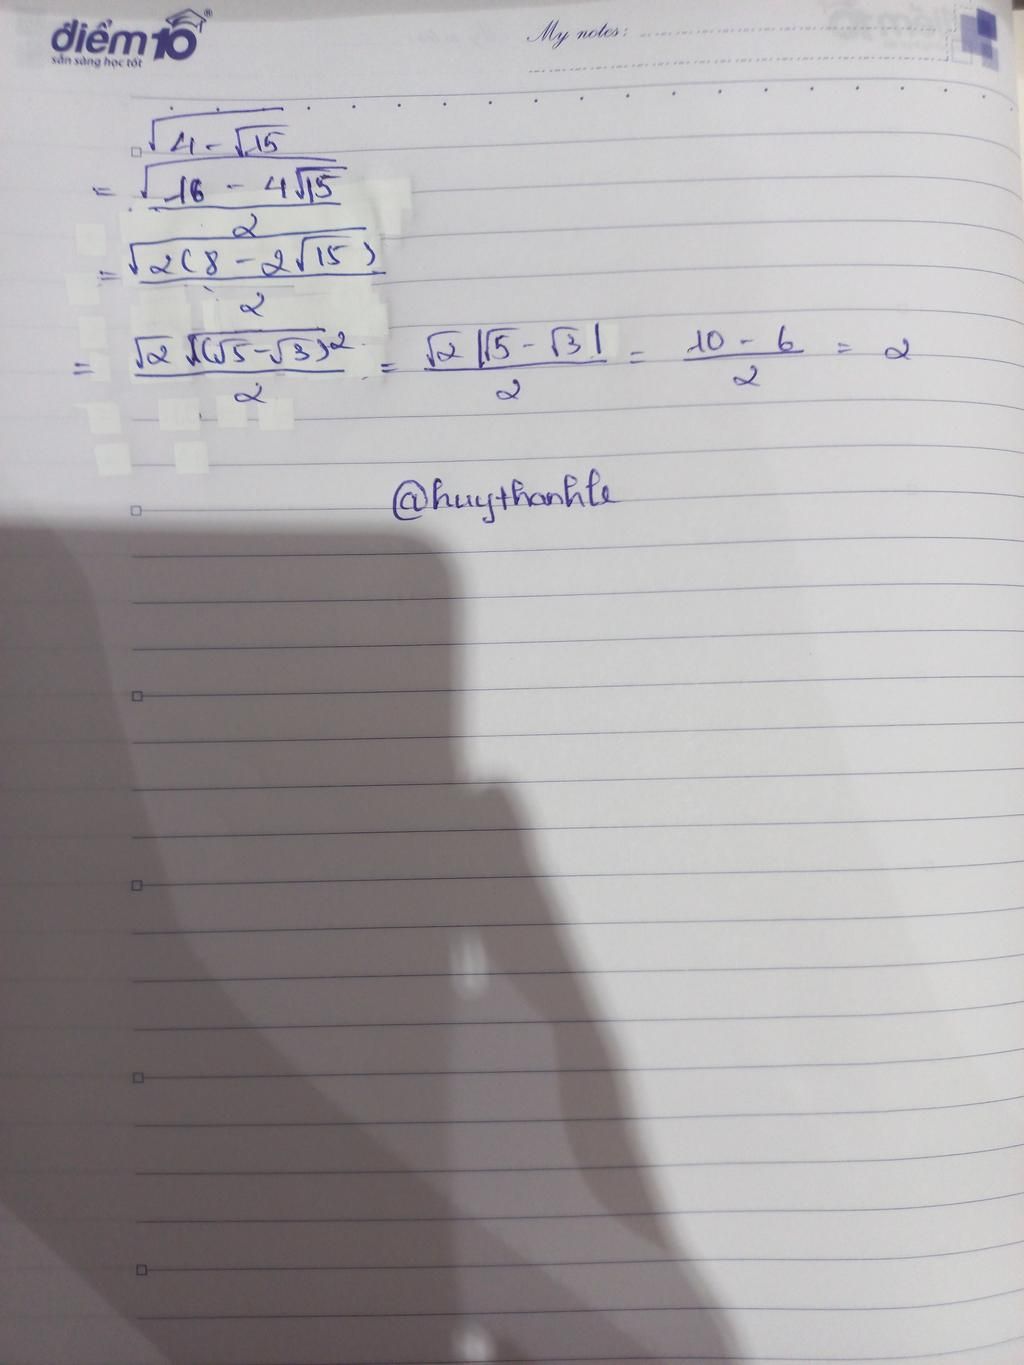 điểm10
sẵn sàng học tốt
My notes:
√(4 - √15)
= √(16 - 4√15) / 2
= √(2(8 - 2√15)) / 2
= √2 √(√5 - √3)² / 2 = √2 |√5 - √3| / 2 = 10 - 6 / 2 = 2
@huythanhle